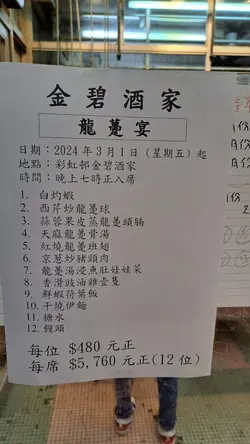 金碧酒家
龍躉宴
日期：2024年3月1日（星期五）起
地點：彩虹邨金碧酒家
時間：晚上七時正入席
1. 白灼蝦
2. 西芹炒龍躉球
3. 蒜蓉果皮蒸龍躉頭腩
4. 天麻龍躉骨湯
5. 紅燒龍躉班翅
6. 京葱炒豬頭肉
7. 龍躉湯浸魚肚娃娃菜
8. 香滑豉油雞壹隻
9. 鮮蝦荷葉飯
10. 干燒伊麵
11. 糖水
12. 饅頭
每位 $480 元正
每席 $5,760 元正(12 位)